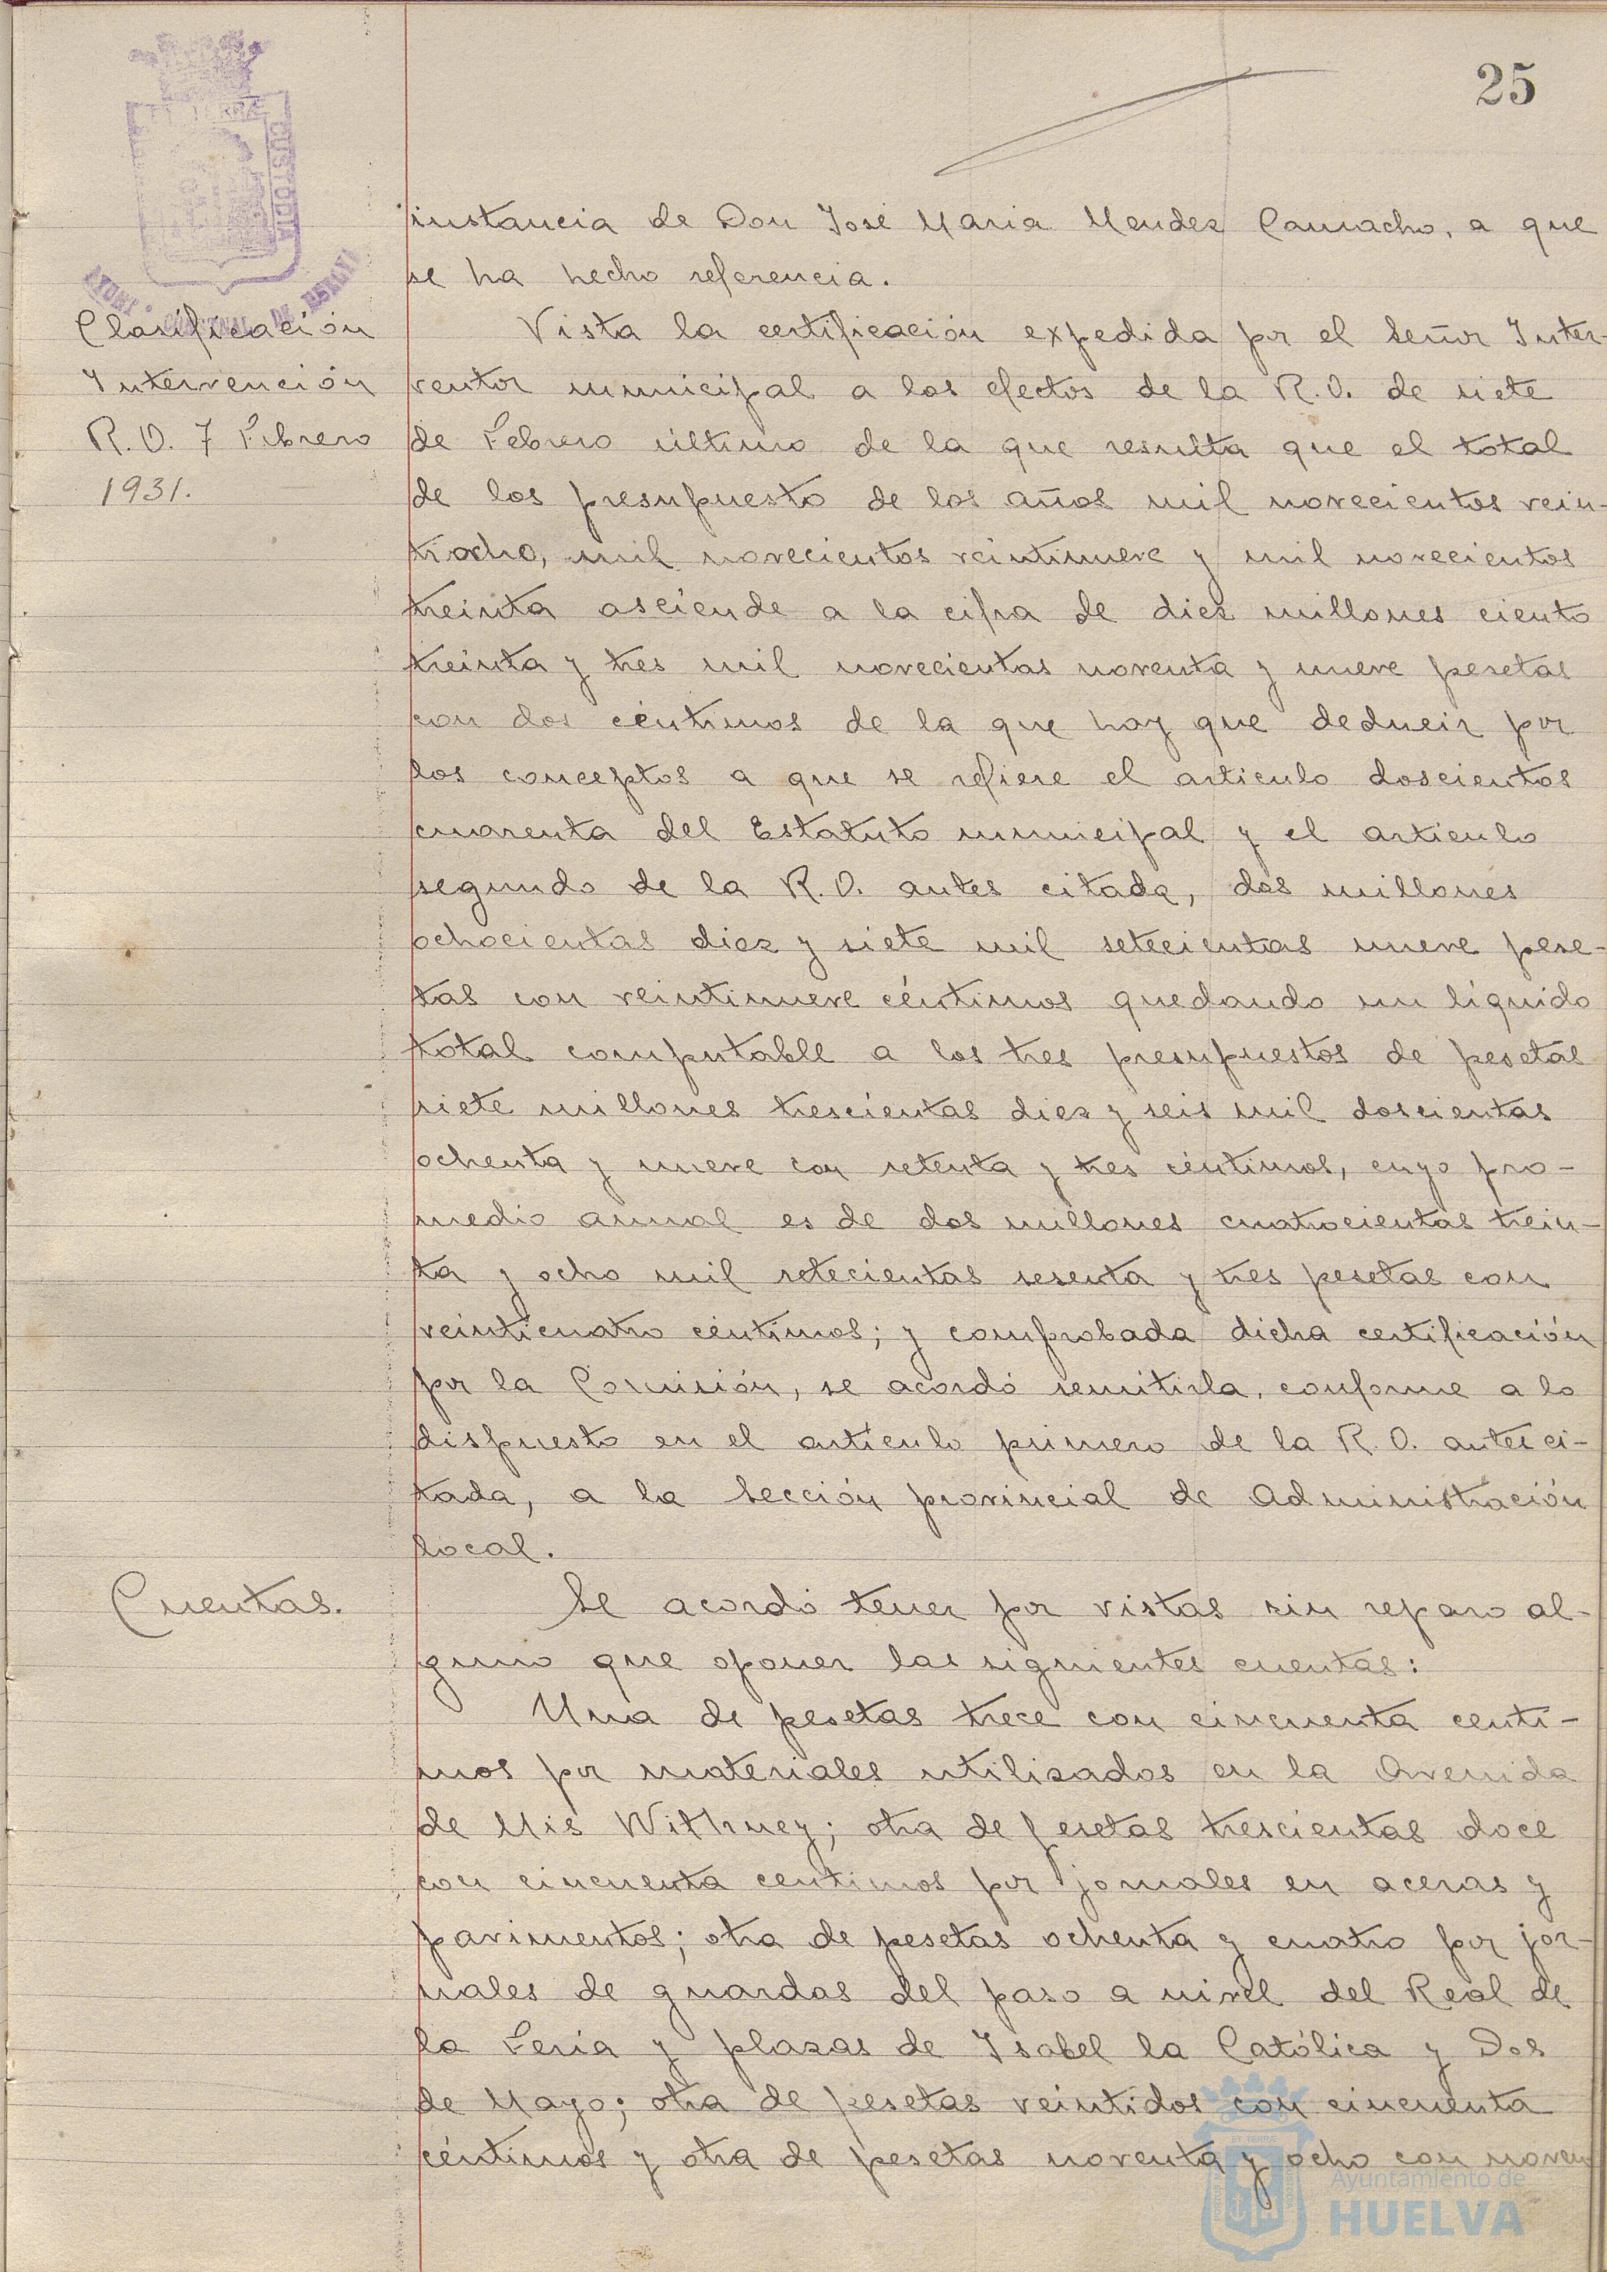 25
instancia de Don José Maria Mendez Camacho, a que
se ha hecho referencia.
Clasificación
Intervención
R.O. 7 Febrero
1931.
Vista la certificación expedida por el Señor Inter-
ventor municipal a los efectos de la R.O. de siete
de Febrero último de la que resulta que el total
de los presupuesto de los años mil novecientos vein-
tiocho, mil novecientos veintinueve y mil novecientos
treinta asciende a la cifra de diez millones ciento
treinta y tres mil novecientas noventa y nueve pesetas
con dos céntimos de la que hay que deducir por
los conceptos a que se refiere el articulo doscientos
cuarenta del Estatuto municipal y el articulo
segundo de la R.O. antes citada, dos millones
ochocientas diez y siete mil setecientas nueve pese-
tas con veintinueve céntimos quedando un líquido
total computable a los tres presupuestos de pesetas
siete millones trescientas diez y seis mil doscientas
ochenta y nueve con setenta y tres céntimos, cuyo pro-
medio annal es de dos millones cuatrocientas trein-
ta y ocho mil setecientas sesenta y tres pesetas con
veinticuatro céntimos; y comprobada dicha certificación
por la Comisión, se acordó remitirla, conforme a lo
dispuesto en el artículo primero de la R.O. anteci-
tada, a la Sección provincial de Administración
local.
Cuentas.
Se acordó tener por vistas sin reparo al-
guno que oponer las siguientes cuentas:
Una de pesetas trece con cincuenta centi-
mos por materiales utilizados en la Avenida
de Mis Withney; otra de pesetas trescientas doce
con cincuenta centimos por jornales en aceras y
pavimentos; otra de pesetas ochenta y cuatro por jor-
nales de guardas del paso a nivel del Real de
la Feria y plazas de Isabel la Católica y Dos
de Mayo; otra de pesetas veintidos con cincuenta
céntimos y otra de pesetas noventa y ocho con noven
TERRÆ
CUSTODIA
Ayuntamiento de
HUELVA